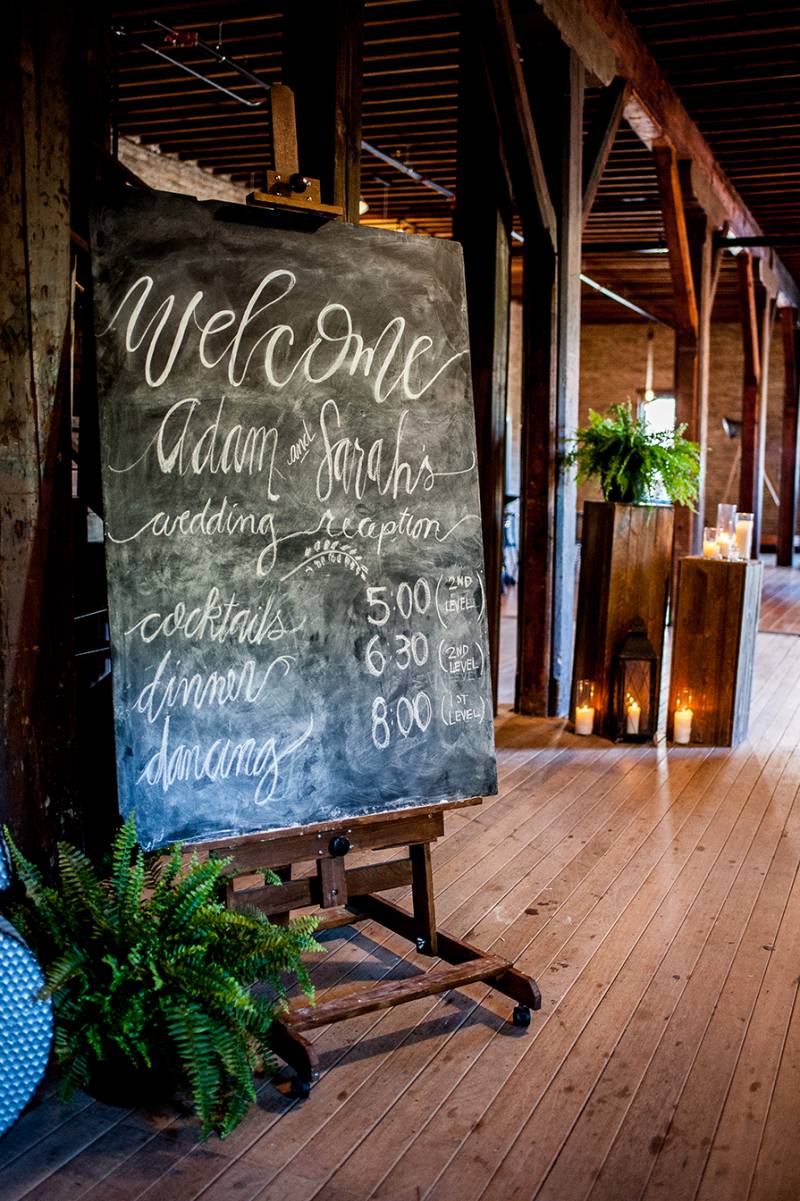 welcome
Adam and Sarah's
wedding reception
cocktails 5:00 (2ND LEVEL)
dinner 6:30 (2ND LEVEL)
dancing 8:00 (1ST LEVEL)